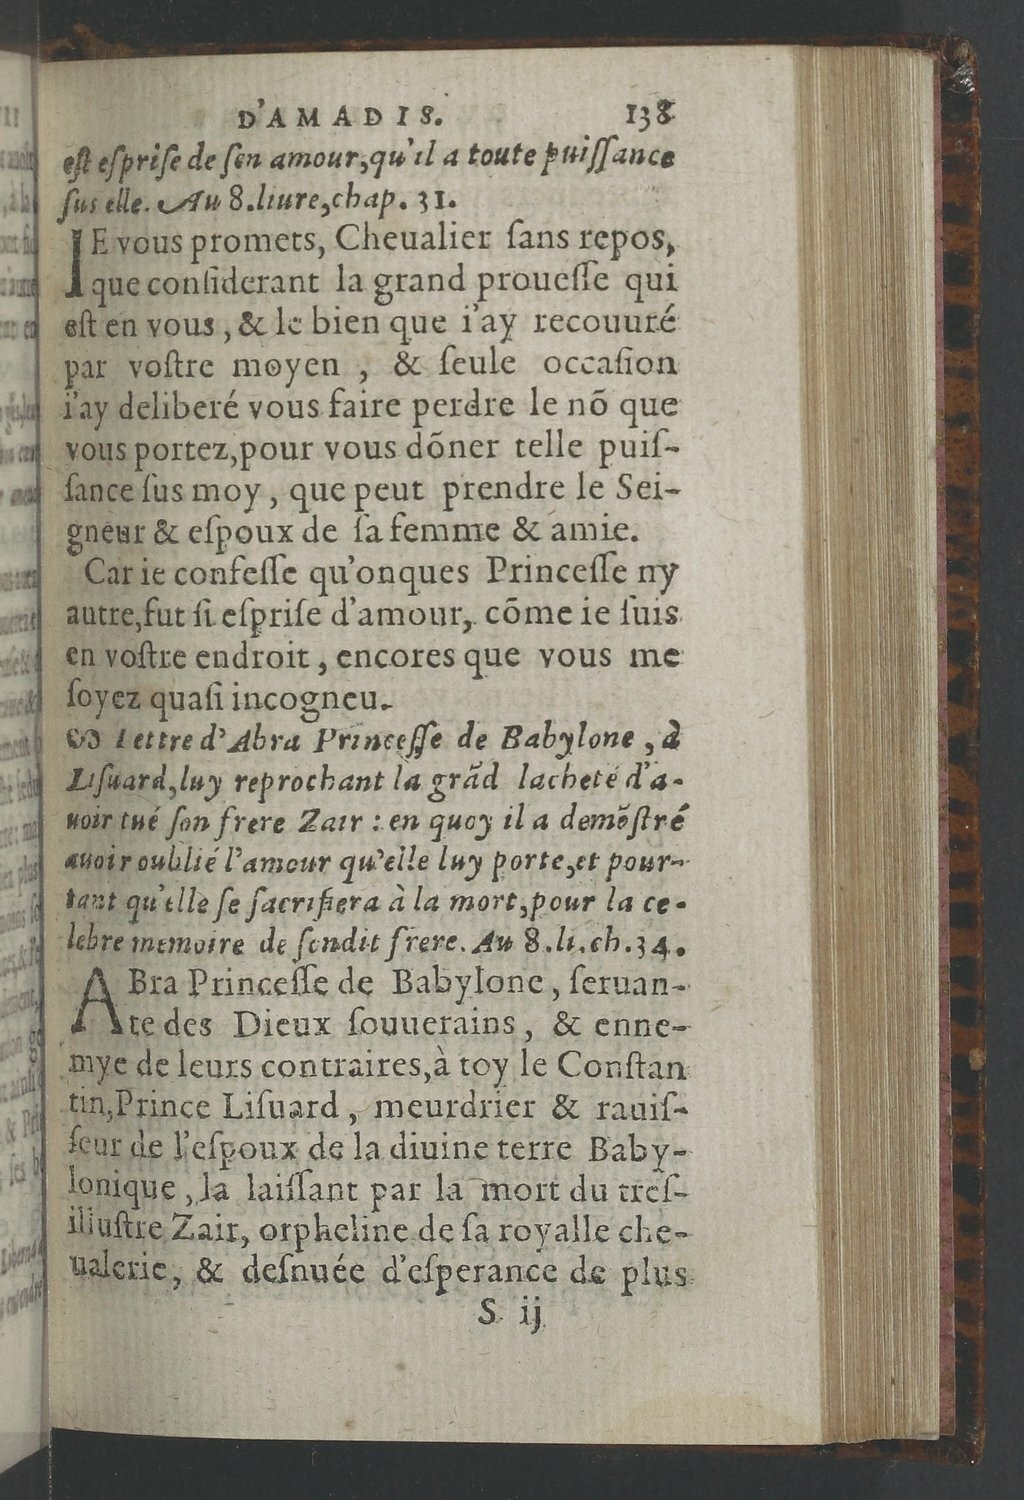 D'AMADIS. 138
est esprise de son amour, qu'il a toute puissance
sus elle. Au 8. liure, chap. 31.
IE vous promets, Cheualier sans repos,
que considerant la grand prouesse qui
est en vous, & le bien que i'ay recouuré
par vostre moyen, & seule occasion
i'ay deliberé vous faire perdre le nõ que
vous portez, pour vous dõner telle puis-
sance sus moy, que peut prendre le Sei-
gneur & espoux de sa femme & amie.
Car ie confesse qu'onques Princesse ny
autre, fut si esprise d'amour, cõme ie suis
en vostre endroit, encores que vous me
soyez quasi incogneu.
Lettre d'Abra Princesse de Babylone, à
Lisuard, luy reprochant la grãd lacheté d'a-
uoir tué son frere Zair : en quoy il a demõstré
auoir oublié l'amour qu'elle luy porte, et pour-
tant qu'elle se sacrifiera à la mort, pour la ce-
lebre memoire de sondit frere. Au 8. li. ch. 34.
ABra Princesse de Babylone, seruan-
te des Dieux souuerains, & enne-
mye de leurs contraires, à toy le Constan
tin, Prince Lisuard, meurdrier & rauis-
seur de l'espoux de la diuine terre Baby-
lonique, la laissant par la mort du tres-
illustre Zair, orpheline de sa royalle che-
ualerie, & desnuée d'esperance de plus
S ij